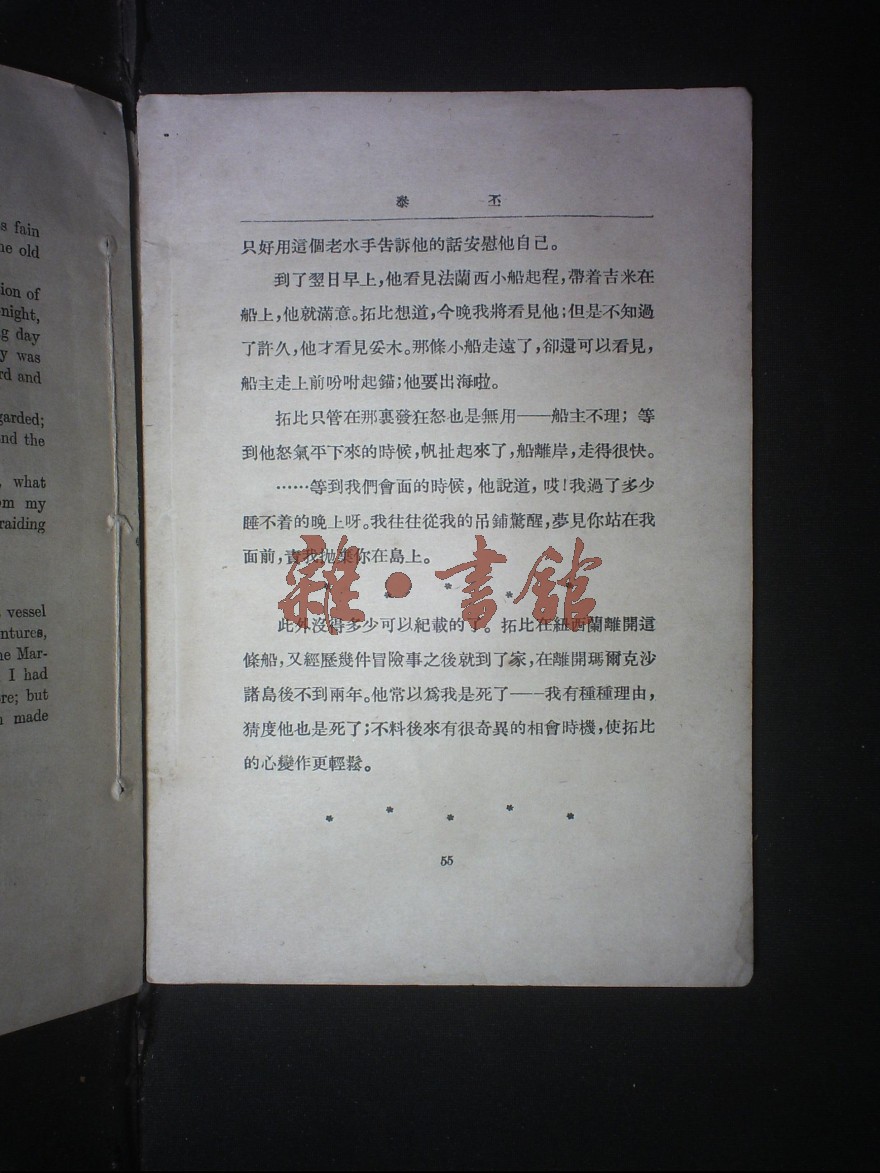 s fain
he old
ion of
-night,
g day
y was
rd and
garded;
nd the
, what
om my
raiding
vessel
ntures,
he Mar-
I had
re; but
n made
泰丕
只好用這個老水手告訴他的話安慰他自己。
到了翌日早上,他看見法蘭西小船起程,帶着吉米在
船上,他就滿意。拓比想道,今晚我將看見他;但是不知過
了許久,他才看見妥木。那條小船走遠了,卻還可以看見,
船主走上前吩咐起錨;他要出海啦。
拓比只管在那裏發狂怒也是無用——船主不理;等
到他怒氣平下來的時候,帆扯起來了,船離岸,走得很快。
……等到我們會面的時候,他說道,哎!我過了多少
睡不着的晚上呀。我往往從我的吊鋪驚醒,夢見你站在我
面前,責我拋棄你在島上。
雜·書館
此外沒得多少可以紀載的了。拓比在紐西蘭離開這
條船,又經歷幾件冒險事之後就到了家,在離開瑪爾克沙
諸島後不到兩年。他常以爲我是死了——我有種種理由,
猜度他也是死了;不料後來有很奇異的相會時機,使拓比
的心變作更輕鬆。
* * * * *
55